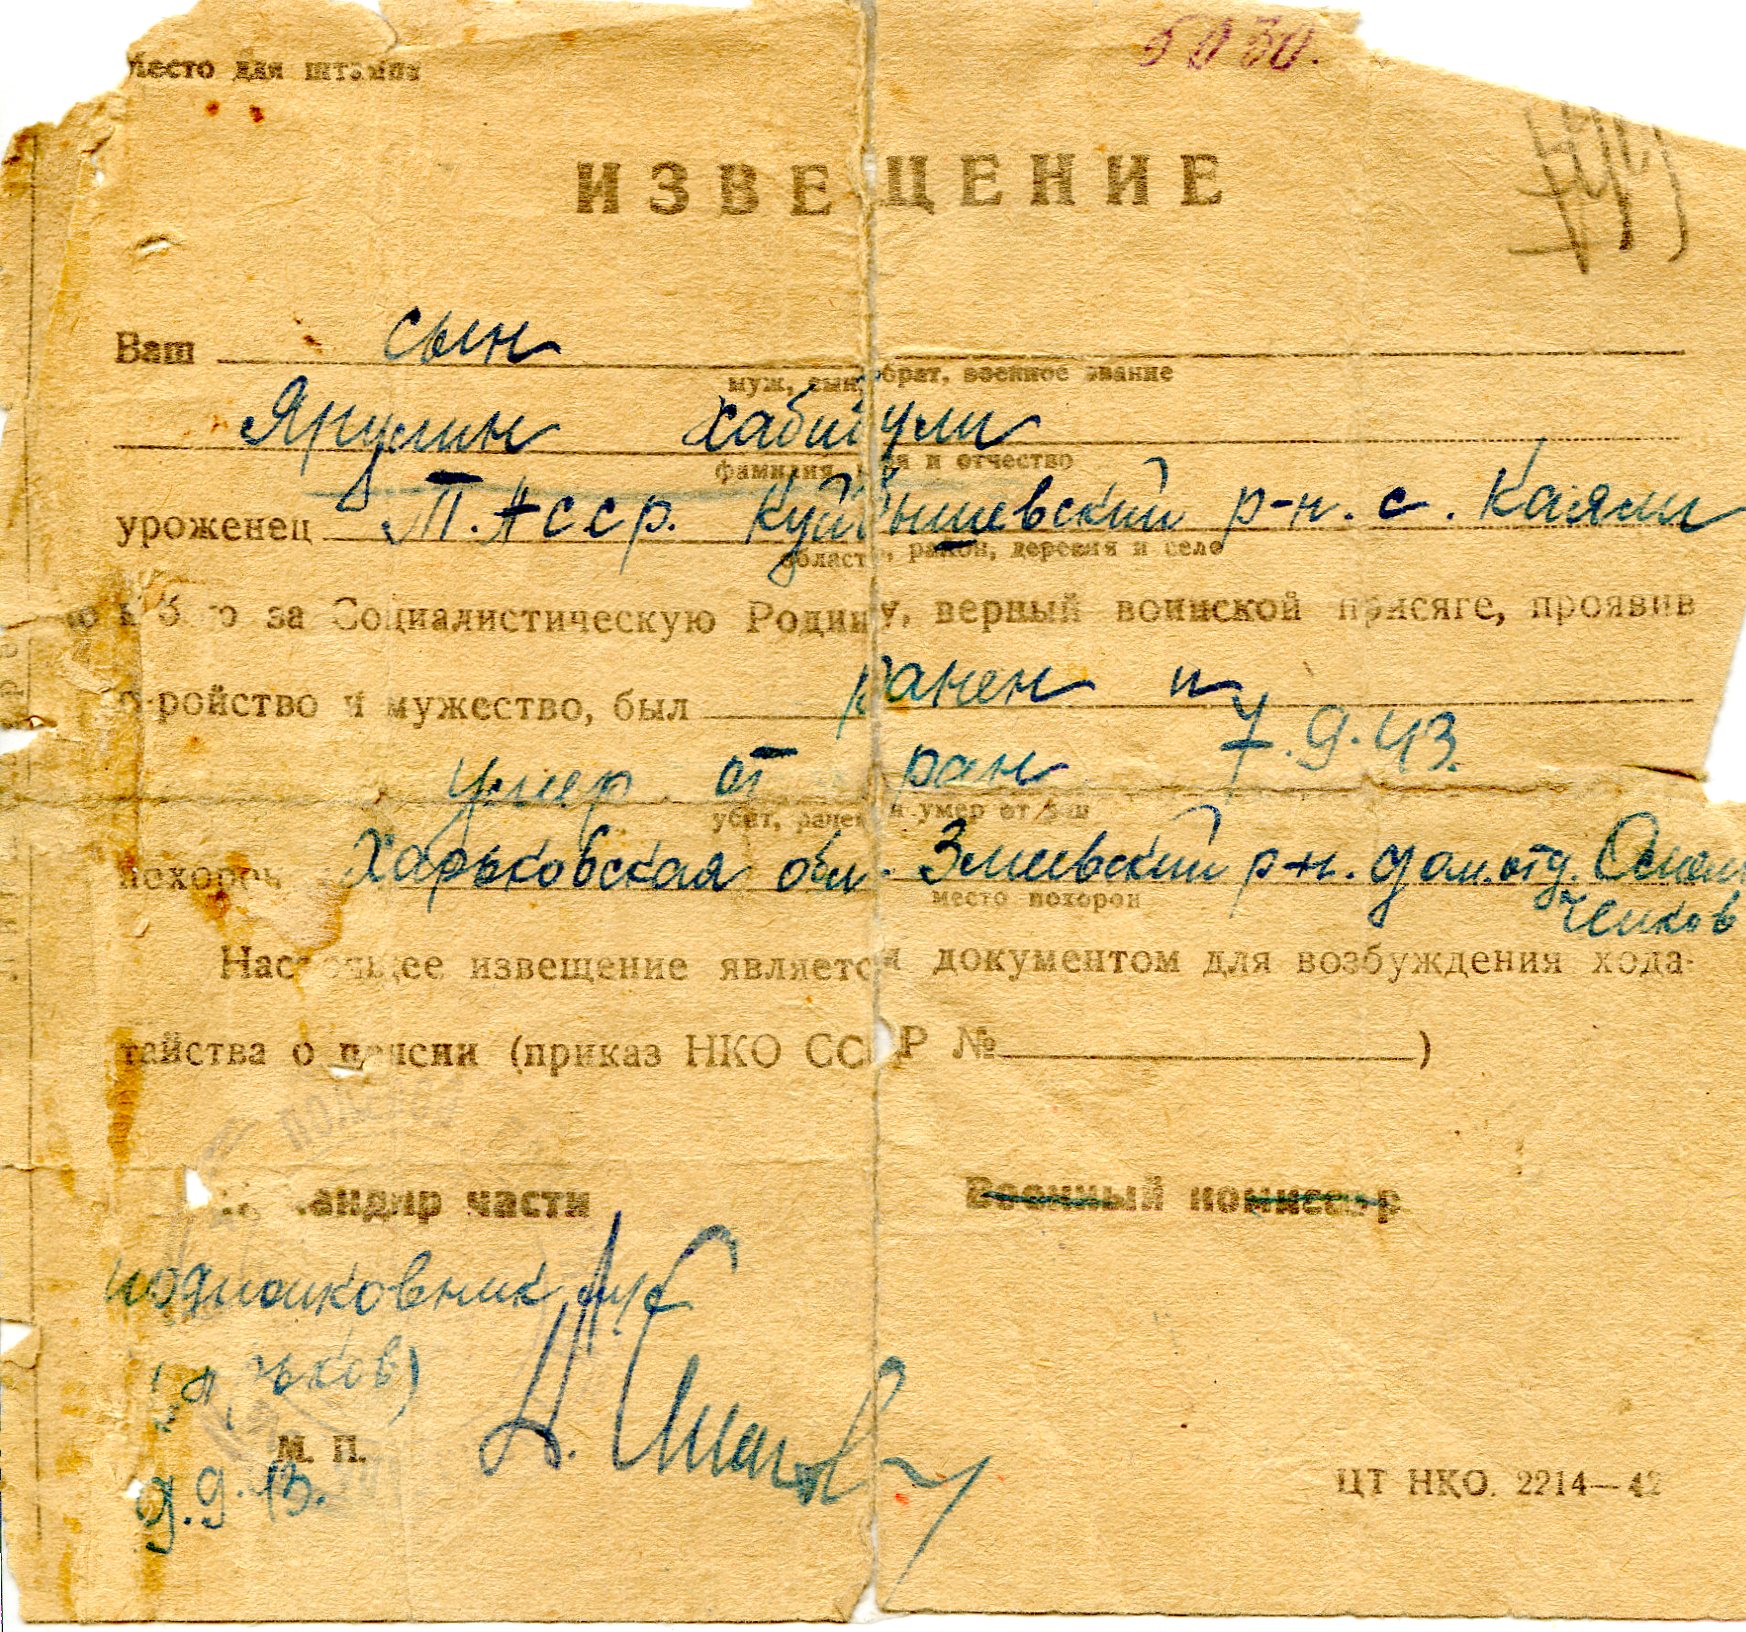 Место для штампа
5030.
ИЗВЕЩЕНИЕ
Ваш сын
муж, сын, брат, военное звание
Ярулин Хабибули
фамилия, имя и отчество
уроженец Т.АССР. Куйбышевский р-н. с. Каяли
область, район, деревня и село
в бою за Социалистическую Родину, верный воинской присяге, проявив
геройство и мужество, был ранен и
умер от ран 7.9.43.
убит, ранен и умер от ран
похорон Харьковская обл. Змиевский р-н.
место похорон
Настоящее извещение является документом для возбуждения хода-
тайства о пенсии (приказ НКО СССР № )
Командир части Военный комиссар
подполковник
ьков)
М. П.
9.9.43.
ЦТ НКО. 2214—42